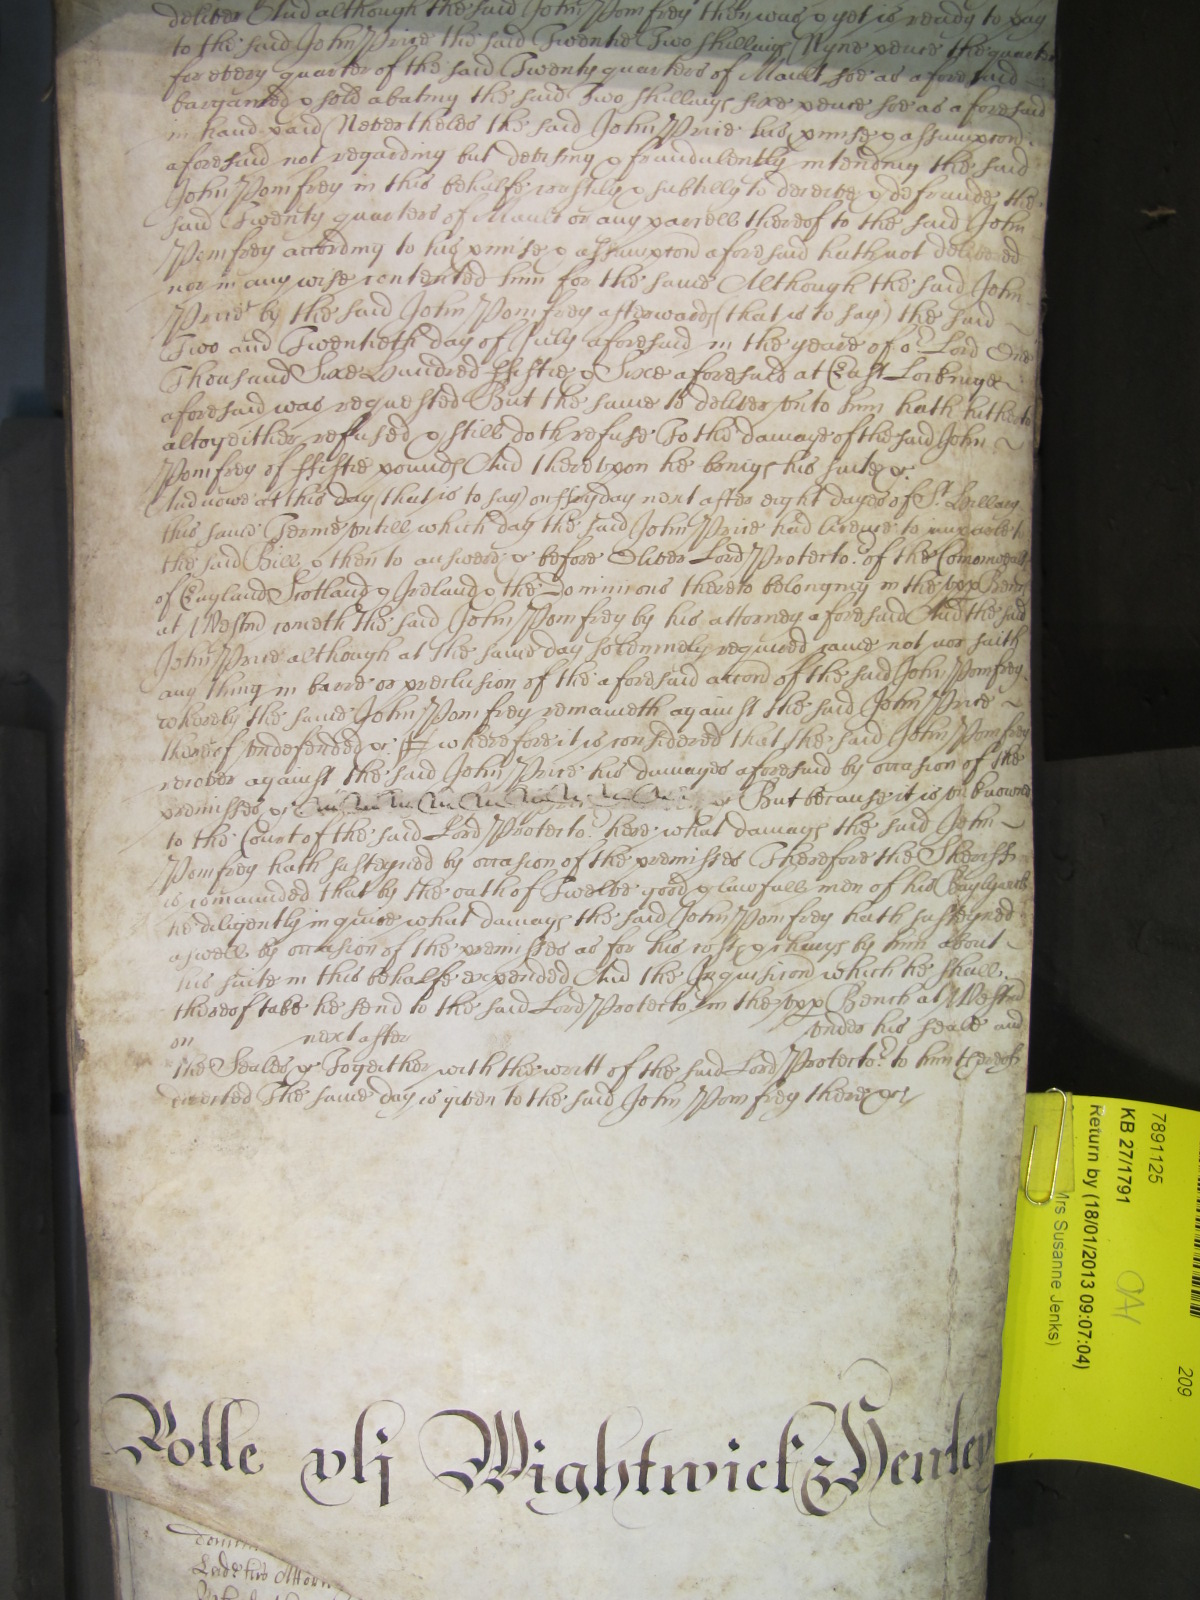 deliver And although the said John Pomfrey then was & yet is ready to pay
to the said John Price the said Twentie Two shillings Nyne pence the quarter
for every quarter of the said Twenty quarters of Mault soe as aforesaid
bargained & sold abating the said Two shillings sixe pence soe as aforesaid
in hand paid Neverthelesse the said John Price his pmise & assumpcon
aforesaid not regarding but devising & fraudulently intending the said
John Pomfrey in this behalfe craftily & subtilly to deceive & defraude the
said Twenty quarters of Mault or any parcell thereof to the said John
Pomfrey according to his pmise & assumpcon aforesaid hath not delivered
nor in any wise contented him for the same Although the said John
Price by the said John Pomfrey afterwards (that is to say) the said
Two and Twentieth day of July aforesaid in the yeare of or Lord One
Thousand Sixe Hundred ffiftie & Sixe aforesaid at East Lockinge
aforesaid was requested But the same to deliver unto him hath hitherto
altogeither refused & still doth refuse To the damage of the said John
Pomfrey of ffiftie pounds And thereupon he brings his suite &c
And nowe at this day (that is to say) on ffryday next after eight dayes of St Hillary
this same Terme untill which day the said John Price had leave to imparle to
the said Bill & then to answere &c before Oliver Lord Protector of the Comonwealth
of England Scotland & Ireland & the Dominions thereto belonging in the upp Bench
at Westm cometh the said John Pomfrey by his attorney aforesaid And the said
John Price although at the same day solemnely required came not nor saith
any thing in barre or preclusion of the aforesaid accon of the said John Pomfrey
whereby the same John Pomfrey remaineth against the said John Price
thereof undefended &c wherefore it is considered that the said John Pomfrey
recover against the said John Price his damages aforesaid by occasion of the
premisses &c But because it is unknowne
to the Court of the said Lord Protector here what damags the said John
Pomfrey hath susteyned by occasion of the premisses Therefore the Sheriffe
is comaunded that by the oath of Twelve good & lawfull men of his Baylywick
he diligently inquire what damags the said John Pomfrey hath susteyned
aswell by occasion of the premisses as for his costs & charges by him about
his suite in this behalfe expended And the Inquisicon which he shall
thereof take he send to the said Lord Protector in the upp Bench at Westm
on next after under his seale and
the Seales &c Togeither with the writt of the said Lord Protector to him thereof
directed The same day is given to the said John Pomfrey there &c
Rolle vlj Wightwick Henley
7891125
KB 27/1791
Return by (18/01/2013 09:07:04)
Mrs Susanne Jenks)
209